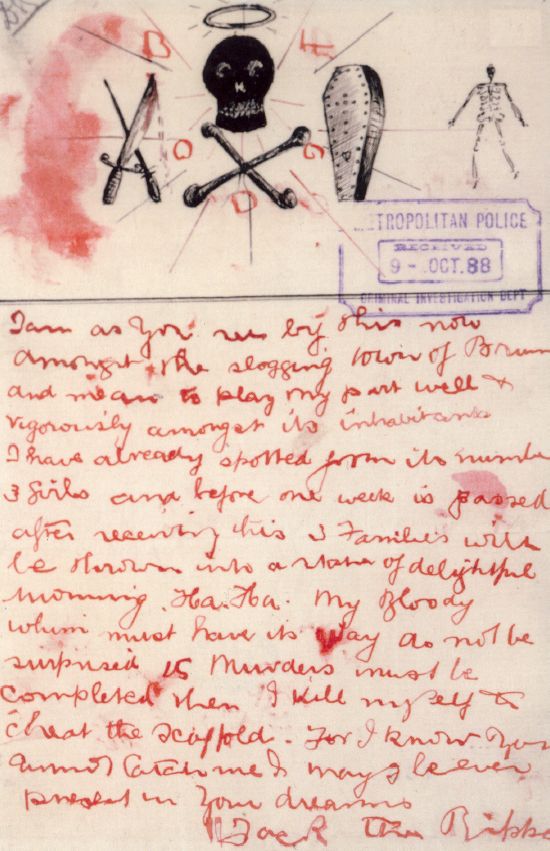 B
F
O
G
D
METROPOLITAN POLICE
RECEIVED
9 - OCT. 88
CRIMINAL INVESTIGATION DEPT
I am as you see by this now
amongst the slogging town of Brum
and mean to play my part well &
vigorously amongst its inhabitants
I have already spotted from its numbe
3 Girls and before one week is passed
after receiving this 3 Families will
be thrown into a state of delightful
mourning. Ha. Ha. My Bloody
whim must have its way do not be
surprised 15 Murders must be
completed then I kill myself &
cheat the scaffold. For I know you
cannot catch me & may I be ever
present in your dreams
Jack The Rippe